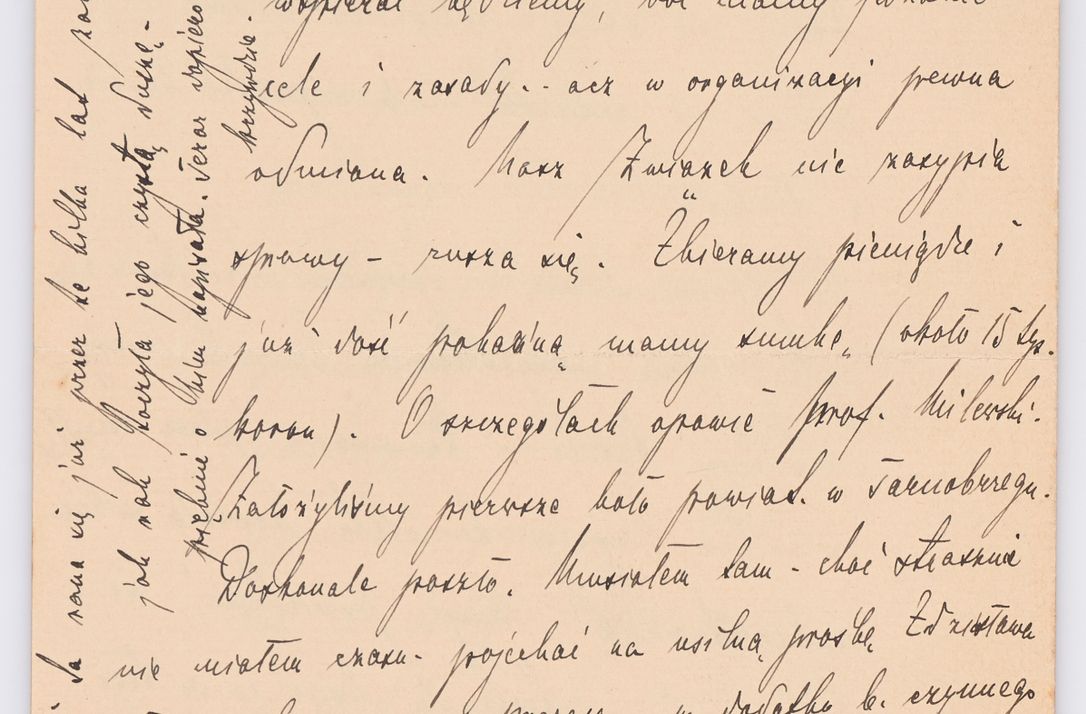 wspierać będziemy, boć mamy
cele i zasady.. acz w organizacyi pewna
odmiana. Nasz Związek nie zasypia
sprawy – rusza się. Zbieramy pieniądze i
już dość pokaźną mamy sumkę (około 15 tys.
koron). O szczegółach opowie Prof. Milewski.
Założyliśmy pierwsze koło powiat. w Tarnobrzegu.
Doskonale poszło. Musiałem tam – choć strasznie
nie miałem czasu – pojechać na usilną prośbę Zdzisława
w dodatku b. czynnego
Ta rana się już przez te kilka lat
jak rak toczyła jego czystą duszę –
pięknie o nim napisała. Teraz dopiero
krzywdzie.